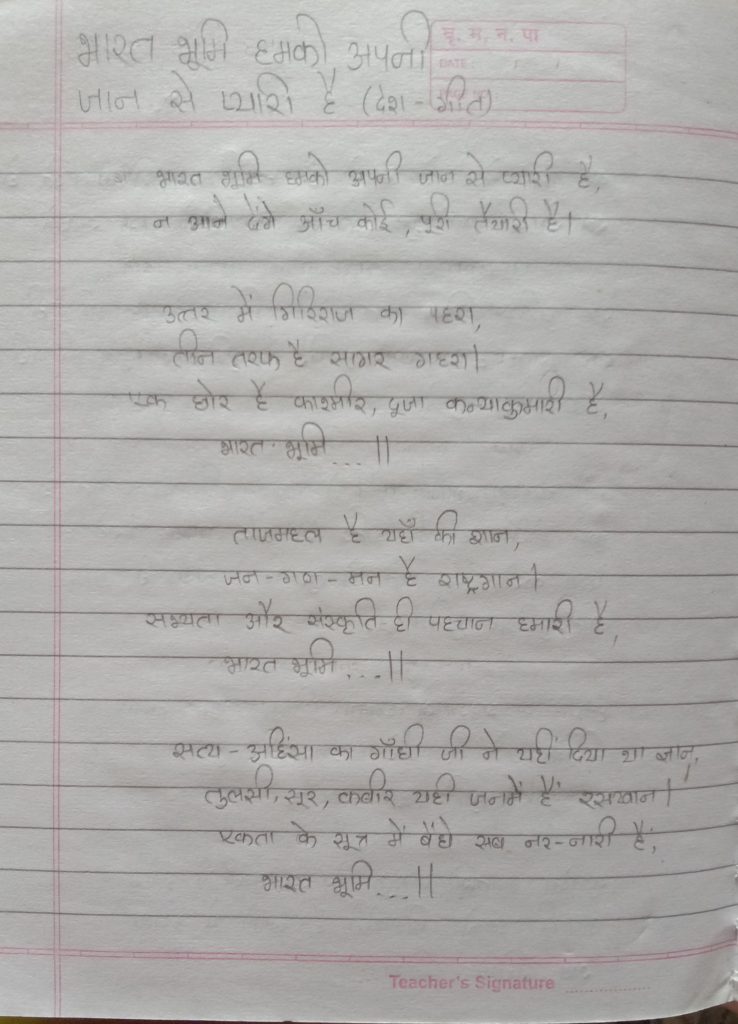 बृ. म. न. पा
DATE:
भारत भूमि हमको अपनी
जान से प्यारी है (देश - गीत)
भारत भूमि हमको अपनी जान से प्यारी है,
न आने देंगे आँच कोई, पूरी तैयारी है।
उत्तर में गिरिराज का पहरा,
तीन तरफ है सागर गहरा।
एक छोर है काश्मीर, दूजा कन्याकुमारी है,
भारत भूमि...||
ताजमहल है यहाँ की शान,
जन-गण-मन है राष्ट्रगान।
सभ्यता और संस्कृति ही पहचान हमारी है,
भारत भूमि...||
सत्य-अहिंसा का गाँधी जी ने यहीं दिया था ज्ञान,
तुलसी, सूर, कबीर यही जनमें हैं रसखान।
एकता के सूत्र में बँधे सब नर-नारी हैं,
भारत भूमि...||
Teacher's Signature ..............